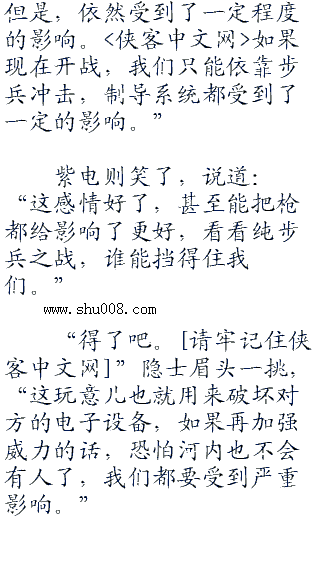 但是，依然受到了一定程度
的影响。<侠客中文网>如果
现在开战，我们只能依靠步
兵冲击，制导系统都受到了
一定的影响。”
紫电则笑了，说道：
“这感情好了，甚至能把枪
都给影响了更好，看看纯步
兵之战，谁能挡得住我
们。”
www.shu008.com
“得了吧。[请牢记住侠
客中文网]”隐士眉头一挑，
“这玩意儿也就用来破坏对
方的电子设备，如果再加强
威力的话，恐怕河内也不会
有人了，我们都要受到严重
影响。”